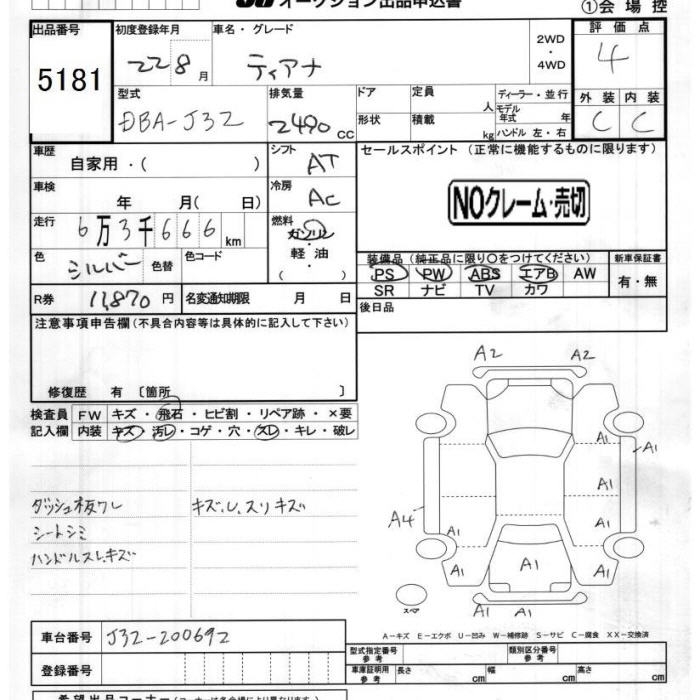 オークション出品申込書
①会場控
出品番号 初度登録年月 車名・グレード 2WD・4WD 評価点
5181 22 8月 ティアナ 4
型式 排気量 ドア 定員 人 ディーラー・並行 外装 内装
DBA-J32 2490cc 形状 積載 kg モデル年式 年 ハンドル 左・右 C C
車歴 自家用・( ) シフト AT セールスポイント (正常に機能するものに限ります)
車検 年 月( 日) 冷房 AC NOクレーム・売切
走行 6万3千666km 燃料 ガソリン・軽油・( )
色 シルバー 色替 色コード
装備品 (純正品に限り○をつけてください) 新車保証書
PS PW ABS エアB AW 有・無
SR ナビ TV カワ
R券 11,870円 名変通知期限 月 日 後日品
注意事項申告欄(不具合内容等は具体的に記入して下さい)
修復歴 有 〔箇所 〕
検査員 FW キズ・飛石・ヒビ割・リペア跡・×要
記入欄 内装 キズ・汚レ・コゲ・穴・スレ・キレ・破レ
ダッシュ板ワレ キズ、U、スリキズ
シートシミ
ハンドルスレ、キズ
A2 A2
A1 A1
A1
A4 A1 A1
A1 A1 A1
スペア
A-キズ E-エクボ U-凹み W-補修跡 S-サビ C-腐食 XX-交換済
車台番号 J32-200692
型式指定番号 参考 類別区分番号 参考
登録番号 車庫証明用 参考 長さ cm 幅 cm 高さ cm
希望出品コーナー